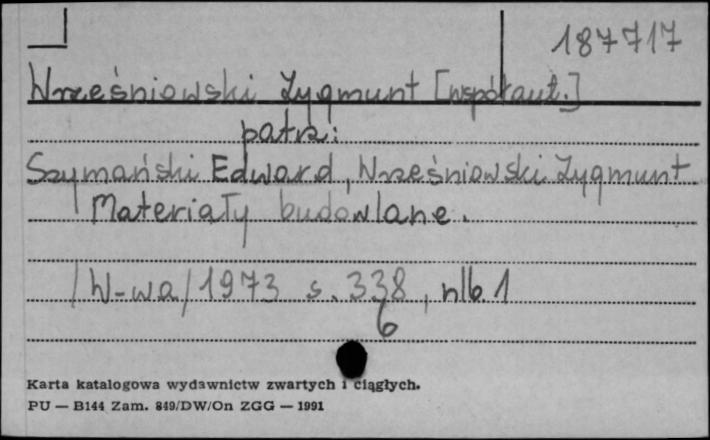 187717
Wrześniowski Zygmunt [współaut.]
patrz:
Szymański Edward, Wrześniowski Zygmunt
Materiały budowlane.
/W-wa/1973 s. 338, nlb. 1
6
Karta katalogowa wydawnictw zwartych i ciągłych.
PU — B144 Zam. 849/DW/On ZGG — 1991